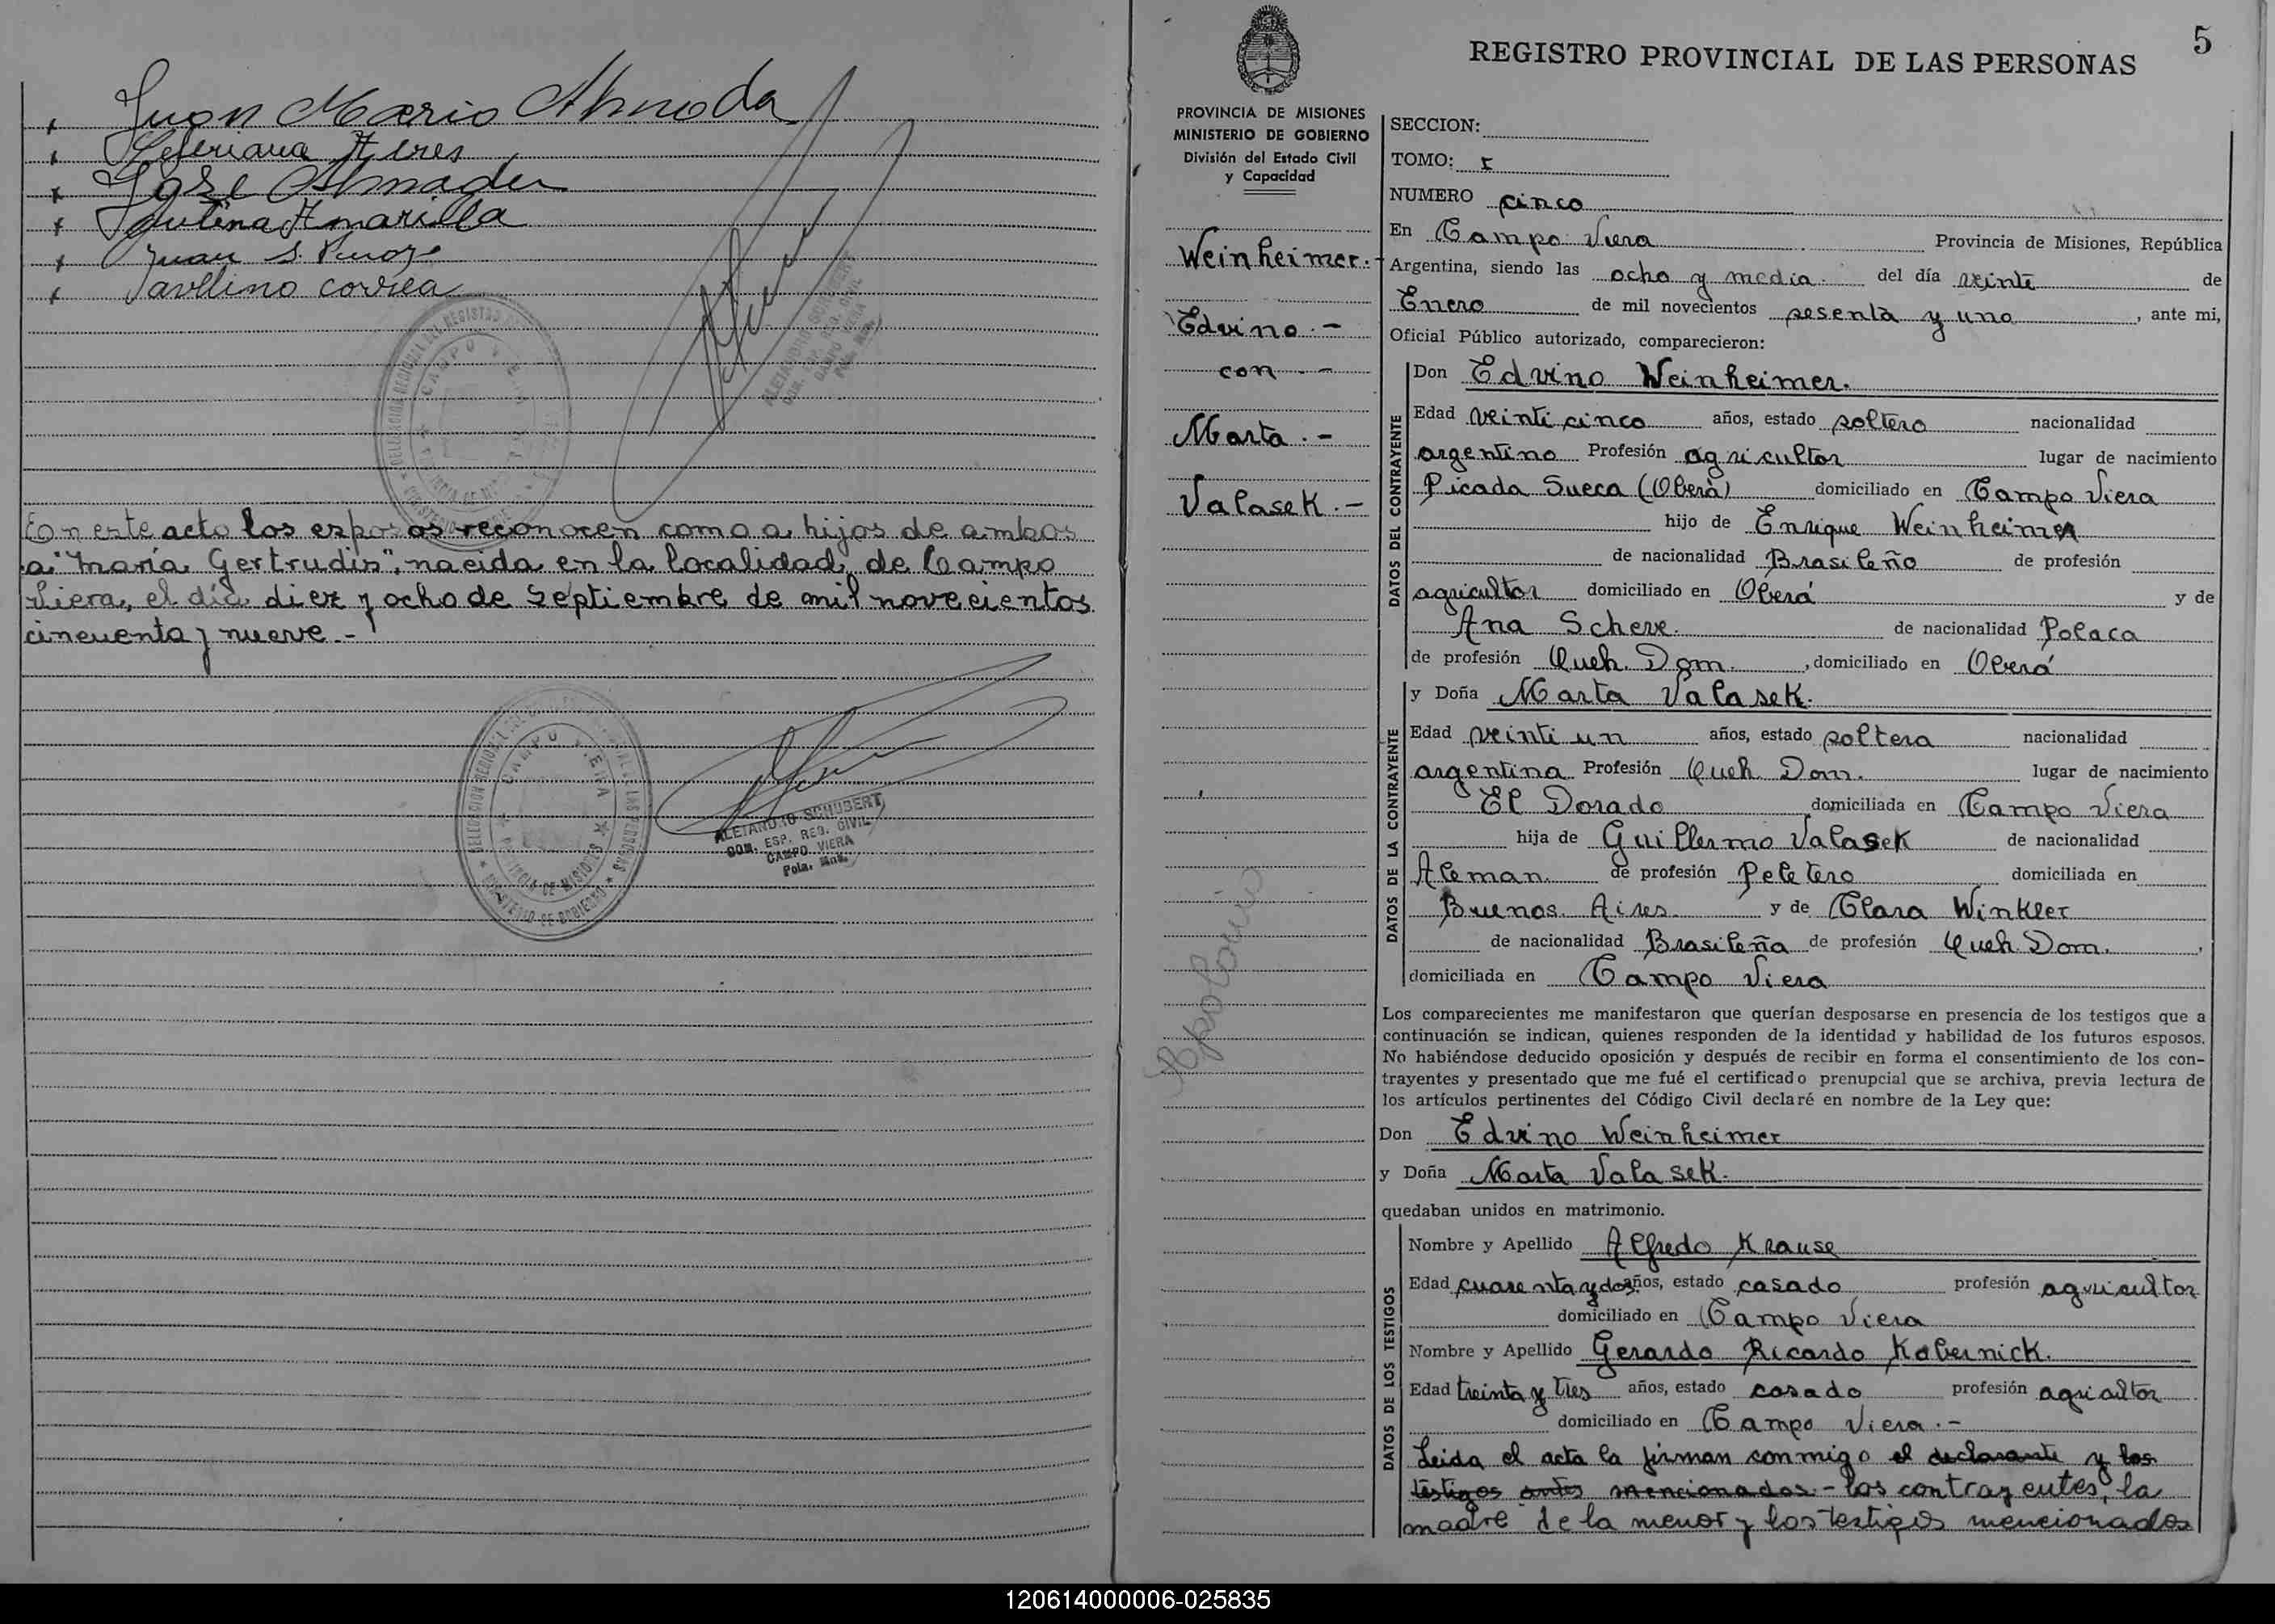 Juan Mario Almada
Ceferiana Neres
José Almada
Paulina Amarilla
Juan S.
Pavllino correa
En este acto los esposos reconocen como a hijos de ambos
a "María Gertrudis", nacida en la localidad de Campo
Viera, el día diez y ocho de Septiembre de mil novecientos
cincuenta y nueve.-
CAMPO VIERA
PROVINCIA DE MISIONES
MINISTERIO DE GOBIERNO
ALEJANDRO SCHUBERT
COM. ESP. REG. CIVIL
CAMPO VIERA
Pcia. Mnes.
5
REGISTRO PROVINCIAL DE LAS PERSONAS
PROVINCIA DE MISIONES
MINISTERIO DE GOBIERNO
División del Estado Civil
y Capacidad
Weinheimer.-
Edvino.-
con.-
Marta.-
Valasek.-
Apolonio
SECCION:
TOMO: I
NUMERO cinco
En Campo Viera Provincia de Misiones, República
Argentina, siendo las ocho y media del día veinte de
Enero de mil novecientos sesenta y uno, ante mi,
Oficial Público autorizado, comparecieron:
DATOS DEL CONTRAYENTE
Don Edvino Weinheimer.
Edad veinti cinco años, estado soltero nacionalidad
argentino Profesión agricultor lugar de nacimiento
Picada Sueca (Oberá) domiciliado en Campo Viera
hijo de Enrique Weinheimer
de nacionalidad Brasileño de profesión
agricultor domiciliado en Oberá y de
Ana Scheve. de nacionalidad Polaca
de profesión Queh. Dom., domiciliado en Oberá
DATOS DE LA CONTRAYENTE
y Doña Marta Valasek.
Edad veinti un años, estado soltera nacionalidad
argentina Profesión Queh. Dom. lugar de nacimiento
El Dorado domiciliada en Campo Viera
hija de Guillermo Valasek de nacionalidad
Aleman de profesión Peletero domiciliada en
Buenos Aires y de Clara Winkler
de nacionalidad Brasileña de profesión Queh. Dom.,
domiciliada en Campo Viera
Los comparecientes me manifestaron que querían desposarse en presencia de los testigos que a
continuación se indican, quienes responden de la identidad y habilidad de los futuros esposos.
No habiéndose deducido oposición y después de recibir en forma el consentimiento de los con-
trayentes y presentado que me fué el certificado prenupcial que se archiva, previa lectura de
los artículos pertinentes del Código Civil declaré en nombre de la Ley que:
Don Edvino Weinheimer
y Doña Marta Valasek.
quedaban unidos en matrimonio.
DATOS DE LOS TESTIGOS
Nombre y Apellido Alfredo Krause
Edad cuarenta y dos años, estado casado profesión agricultor
domiciliado en Campo Viera
Nombre y Apellido Gerardo Ricardo Kabernick.
Edad treinta y tres años, estado casado profesión agricultor
domiciliado en Campo Viera.-
Leida el acta la firman conmigo el declarante y los
testigos antes mencionados - los contrayentes, la
madre de la menor y los testigos mencionados
120614000006-025835